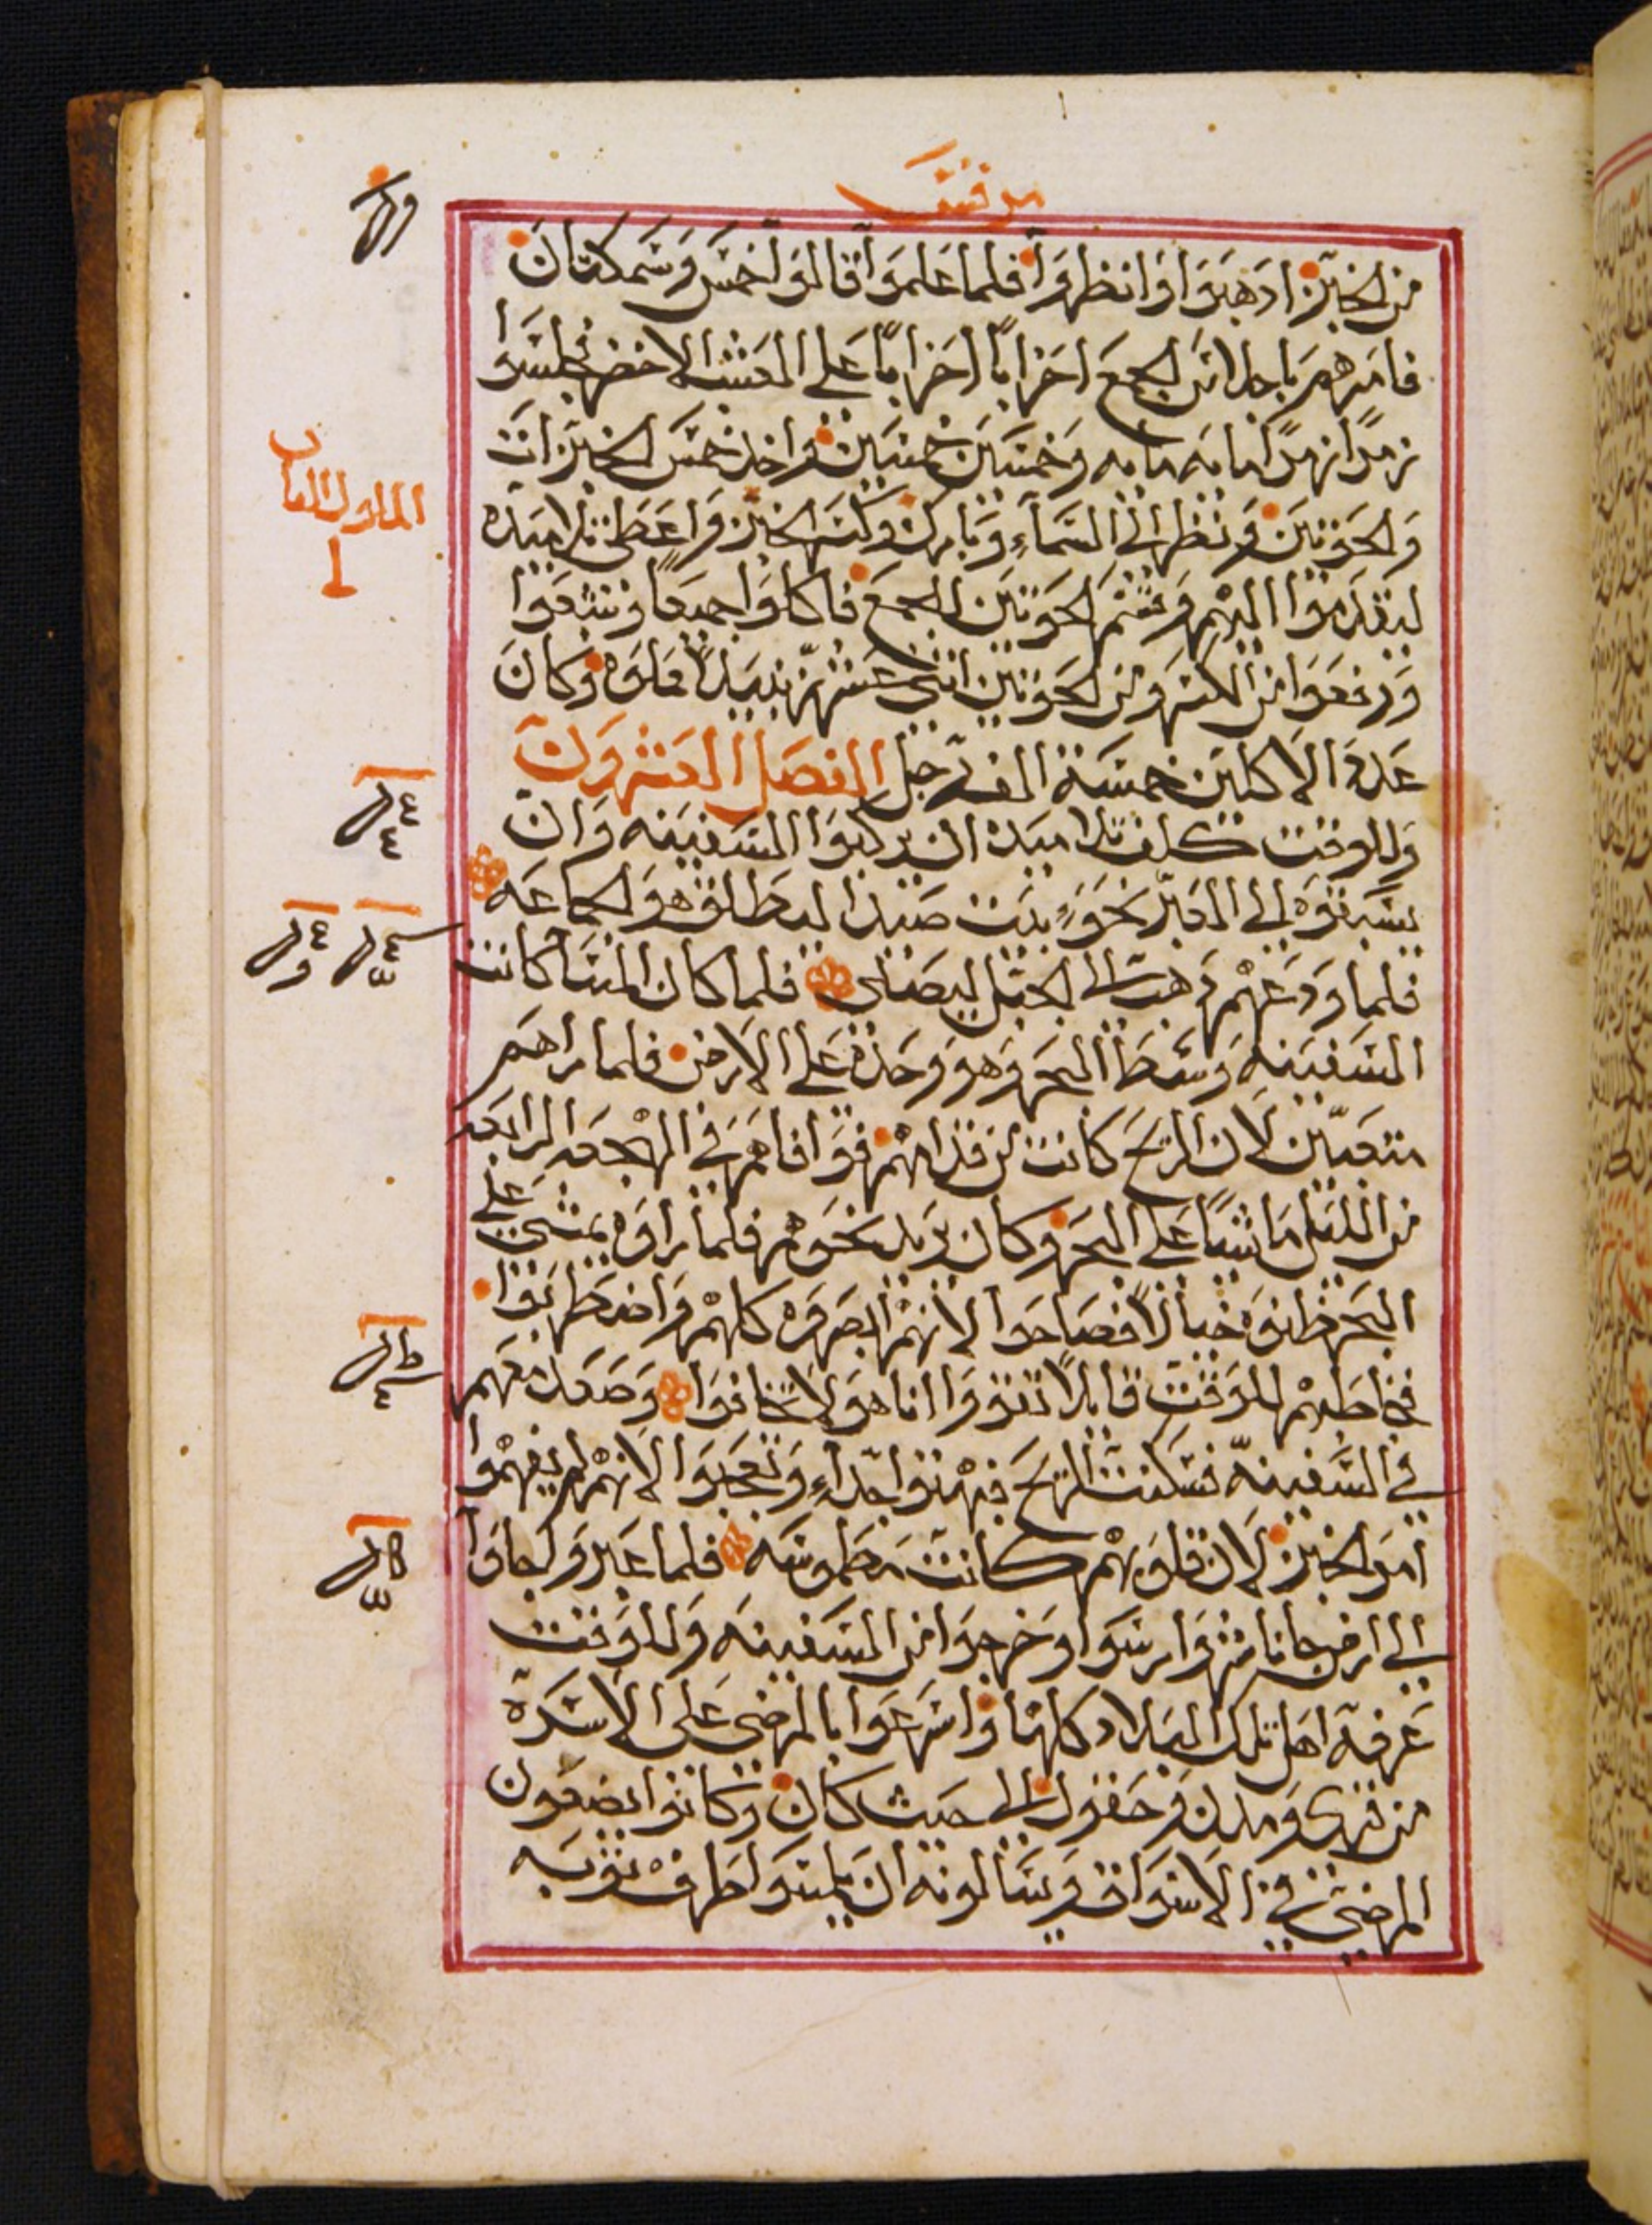 مرقس
من الخبز اذهبوا وانظروا فلما علموا قالوا خمس وسمكتان
فامرهم باجلاس الجمع احزابًا احزابًا على العشب الاخضر فجلسوا
زمرًا زمرًا مايه مايه وخمسين خمسين واخذ خمس الخبزات
والحوتين ونظر الى السماء وبارك وكسر الخبز واعطى تلاميذه
ليقدموا اليهم وقسم الحوتين للجمع فاكلوا جميعا وشبعوا
ورفعوا من الكسر ومن الحوتين اثنى عشر زنبيلا مملوه وكان
عدة الاكلين خمسة الف رجل الفصل العشرون
وللوقت كلف تلاميذه ان يركبوا السفينه وان
يسبقوه الى العبر نحو بيت صيدا ليطلق هو الجماعه
فلما ودعهم ذهب الى الجبل ليصلى فلما كان المسا كانت
السفينه وسط البحر وهو وحده على الارض فلما راهم
متعبين لان الريح كانت من قدامهم فوافاهم في الهجعه الرابعه
من الليل ماشيًا على البحر وكان يريد نحوهم فلما راوه يمشي على
البحر ظنوه خيالاً فصاحوا لانهم ابصروه كلهم واضطربوا
فخاطبهم للوقت قايلاً تقووا انا هو لا تخافوا وصعد معهم
في السفينه فسكنت الريح فبهتوا جدًا وتعجبوا لانهم لم يفهموا
امر الخبز لان قلوبهم كانت مطموسه فلما عبروا جاوا
الى ارض جاناسر وارسوا وخرجوا من السفينه وللوقت
عرفه اهل تلك البلاد كلها واسرعوا بالمرضى على الاسره
من قرى ومدن وحقول الى حيث كان وكانوا يضعون
المرضى في الاسواق ويسالونه ان يلمسوا طرف ثوبه